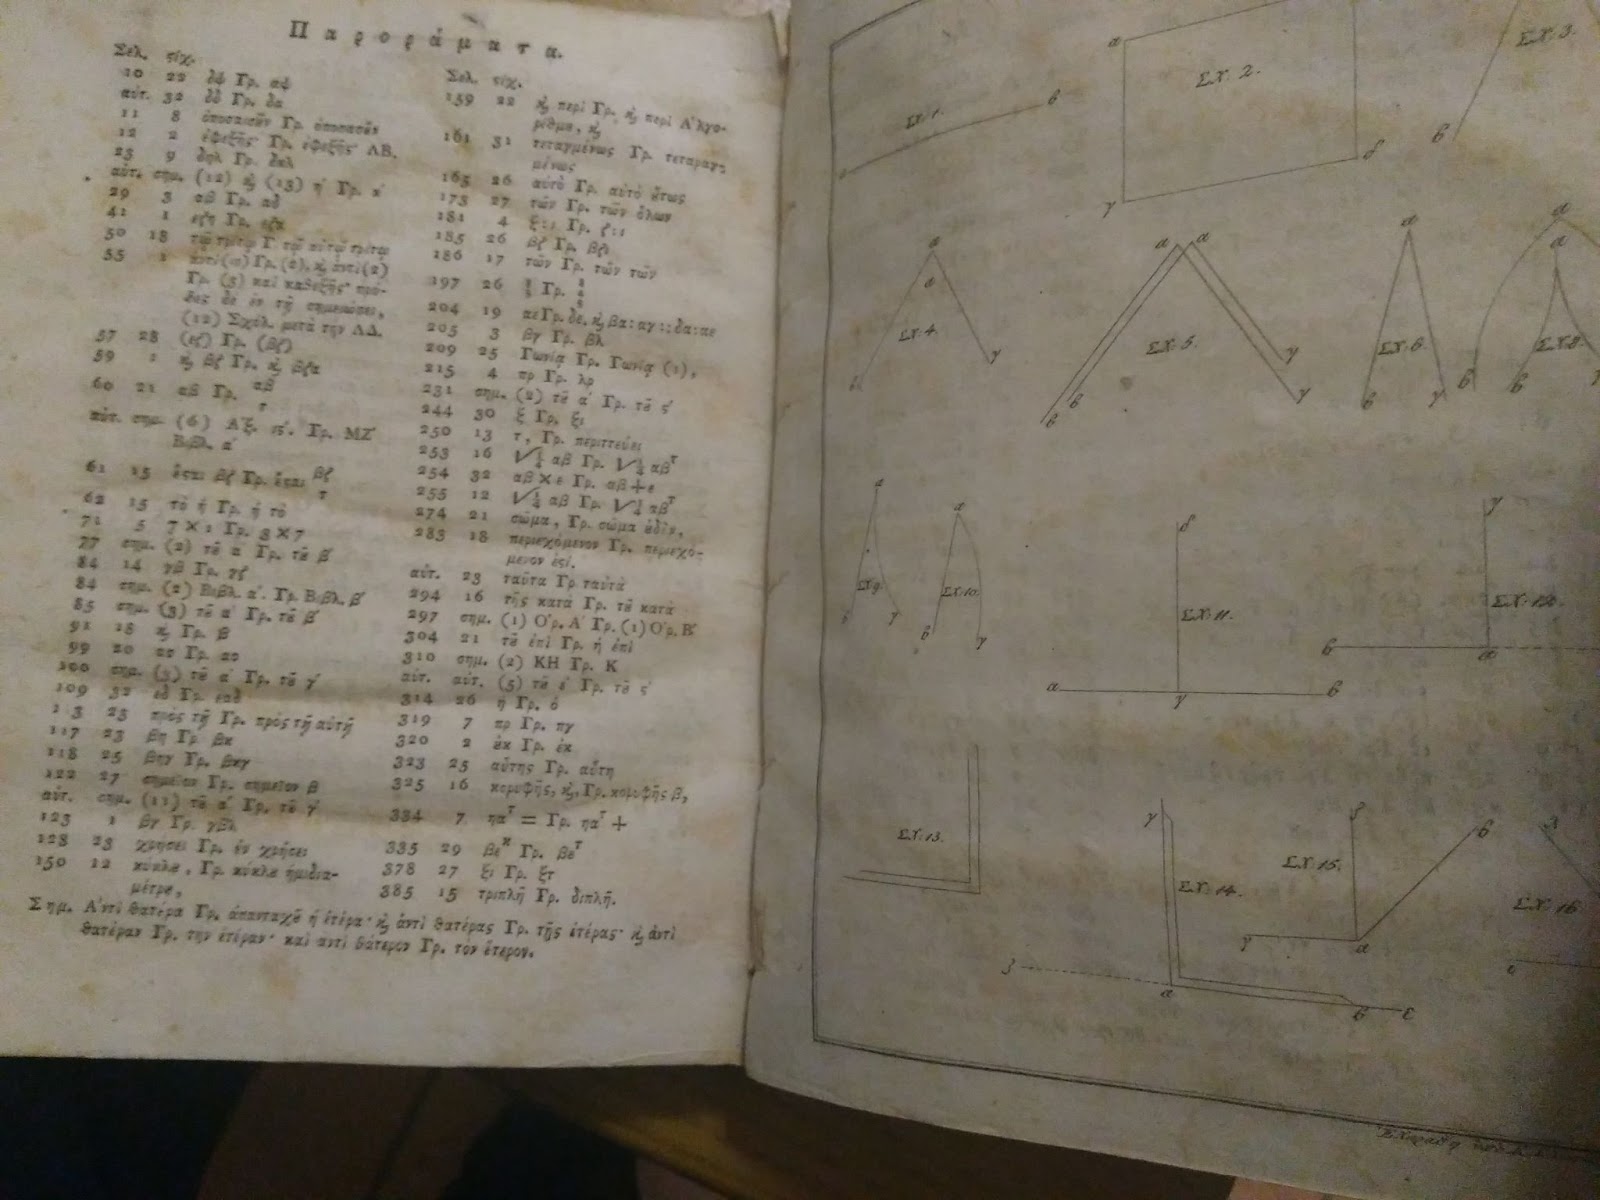 Παροράματα.
Σελ. ςίχ.
10 22 δφ Γρ. αφ
αὐτ. 32 δδ Γρ. δα
11 8 ὁποσαισῦν Γρ. ὁποσασῦν
12 2 ἐφεξῆς· Γρ. ἐφεξῆς ΛΒ.
23 9 δηλ Γρ. δκλ
αὐτ. σημ. (12) ϗ (13) η' Γρ. κ'
29 3 αβ Γρ. αδ
41 1 εζη Γρ. εζα
50 18 τῷ τρίτῳ Γ τῷ αὐτῷ τρίτῳ
55 1 ἀντὶ (10) Γρ. (2), ϗ ἀντὶ (2)
Γρ. (3) καὶ καθεξῆς·
δὲ ἐν τῇ σημειώσει,
(12) Σχόλ. μετὰ τὴν ΛΔ.
57 28 (εζ) Γρ. (βζ)
59 1 ϗ βζ Γρ. ϗ βζα
60 21 αβ Γρ. αβ
τ
αὐτ. σημ. (6) Ἀξ. Γρ. ΜΖ'
Βιβλ. α'
61 15 ἔςαι βζ Γρ. ἔςαι βζ
τ
62 15 τὸ ἡ Γρ. ἡ τὸ
71 5 7 × 1 Γρ. 3 × 7
77 σημ. (2) τȣ͂ α Γρ. τȣ͂ β'
84 14 γβ Γρ. γζ
84 σημ. (2) Βιβλ. α'. Γρ. Βιβλ. β'
85 σημ. (3) τȣ͂ α' Γρ. τȣ͂ β'
91 18 ϗ Γρ. β
99 20 Γρ.
100 σημ. (3) τȣ͂ α' Γρ. τȣ͂ γ'
109 32 εδ Γρ. εαδ
113 23 πρὸς τῇ Γρ. πρὸς τῇ αὐτῇ
117 23 βη Γρ βκ
118 25 βηγ Γρ. βκγ
122 27 σημεῖον Γρ. σημεῖον β
αὐτ. σημ. (11) τȣ͂ α' Γρ. τȣ͂ γ'
123 1 βγ Γρ. γβλ
128 23 χρήσει Γρ. ἐν χρήσει
150 12 κύκλȣ, Γρ. κύκλȣ ἡμιδια-
μέτρȣ,
Σελ. ςίχ.
159 22 ϗ περὶ Γρ. ϗ περὶ Ἀλγο-
ρίθμȣ, ϗ
161 31 τεταγμένως Γρ. τεταραγ-
μένως
165 26 αὐτὸ Γρ. αὐτὸ ȣ̔́τως
173 27 τῶν Γρ. τῶν ὅλων
181 4 ξ:: Γρ. ζ::
185 26 βζ Γρ. βζι
186 17 τῶν Γρ. τῶν τῶν
197 26 Γρ.
204 19 αε Γρ. δε. ϗ βα: αγ :: δα: αε
205 3 βγ Γρ. βλ
209 25 Γωνίᾳ Γρ. Γωνίᾳ (1),
215 4 πρ Γρ. λρ
231 σημ. (2) τȣ͂ α' Γρ. τȣ͂ ς'
244 30 ξ Γρ. ξι
250 13 τ, Γρ. περιττεύει
253 16 √¼ αβ Γρ. √¼ αβᵀ
254 32 αβ × ε Γρ. αβ + ε
255 12 √¼ αβ Γρ. √¼ αβᵀ
274 21 σῶμα, Γρ. σῶμα ȣ̓δὲν,
283 18 περιεχόμενον Γρ. περιεχό-
μενον ἐςί.
αὐτ. 23 ταῦτα Γρ ταὐτὰ
294 16 τῆς κατὰ Γρ. τȣ͂ κατὰ
297 σημ. (1) Ὁρ. Α' Γρ. (1) Ὁρ. Β'
304 21 τȣ͂ ἐπὶ Γρ. ἡ ἐπὶ
310 σημ. (2) ΚΗ Γρ. Κ
αὐτ. αὐτ. (5) τȣ͂ ε' Γρ. τȣ͂ ς'
314 26 ἡ Γρ. ὁ
319 7 πρ Γρ. πγ
320 2 ȣ̓κ Γρ. ἐκ
323 25 αὕτης Γρ. αὕτη
325 16 κορυφῆς, ϗ, Γρ. κορυφῆς β,
334 7 ηαᵀ = Γρ. ηαᵀ +
335 29 βεˣ Γρ. βεᵀ
378 27 ξι Γρ. ξτ
385 15 τριπλῆ Γρ. διπλῆ.
Σημ. Ἀντὶ θατέρα Γρ. ἁπανταχȣ͂ ἡ ἑτέρα· ϗ ἀντὶ θατέρας Γρ. τῆς ἑτέρας· ϗ ἀντὶ
θατέραν Γρ. τὴν ἑτέραν· καὶ ἀντὶ θάτερον Γρ. τὸν ἕτερον.
ΣΧ: 1. β
α ΣΧ: 2. δ γ
ΣΧ: 3. β
α α ΣΧ: 4. β γ
α α ΣΧ: 5. β β γ γ
α ΣΧ: 6. β γ
α α ΣΧ: 8. β β
α ΣΧ: 9. β γ
α ΣΧ: 10. β γ
δ ΣΧ: 11. α γ β
γ ΣΧ: 12. β α
ΣΧ: 13.
γ ΣΧ: 14. ζ α β ε
δ ΣΧ: 15. β γ α
ΣΧ: 16.
Ἐχαράχθη